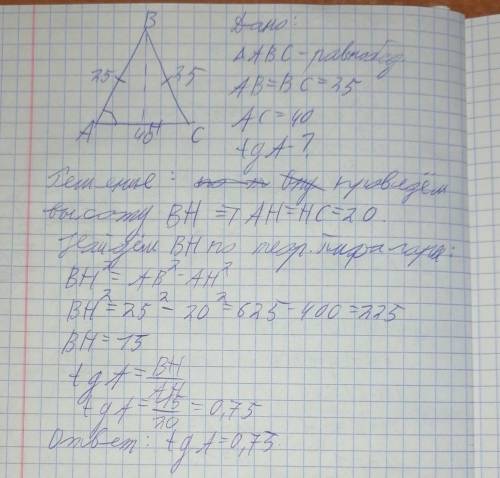 B
Дано:
25
25
ΔABC - равнобед.
AB=BC=25
AC=40
A
40
H
C
tgA-?
Решение: проведём
высоту BH ⇒ AH=HC=20.
Найдём BH по теор. Пифагора:
BH²=AB²-AH²
BH²=25²-20²=625-400=225
BH=15
tgA=BH/AH
tgA=15/20=0,75
Ответ: tgA=0,75